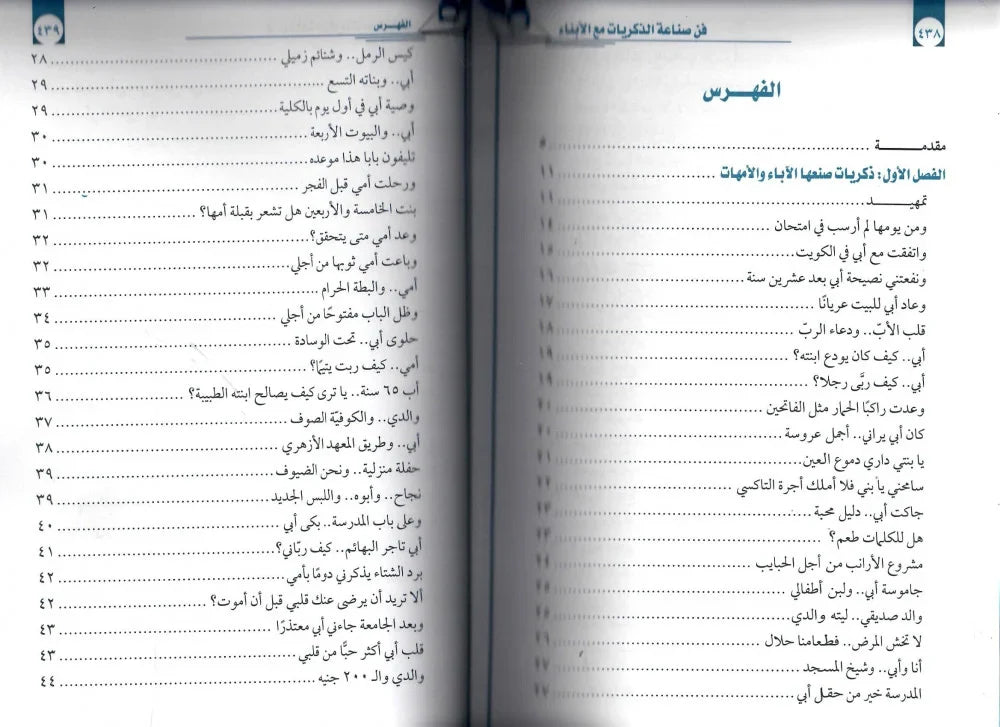 ٤٣٨
فن صناعة الذكريات مع الأبناء
الفهـــرس
مقدمـــــــة ........ ٥
الفصل الأول: ذكريات صنعها الآباء والأمهات ........ ١١
تمهيـــــد ........ ١١
ومن يومها لم أرسب في امتحان ........
واتفقت مع أبي في الكويت ........ ١٥
ونفعتني نصيحة أبي بعد عشرين سنة ........ ١٦
وعاد أبي للبيت عريانًا ........ ١٧
قلب الأبّ.. ودعاء الربّ ........ ١٨
أبي.. كيف كان يودع ابنته؟ ........ ١٩
أبي.. كيف ربَّى رجلا؟ ........ ١٩
وعدت راكبًا الحمار مثل الفاتحين ........ ٢١
كان أبي يراني.. أجمل عروسة ........
يا بنتي داري دموع العين ........ ٢١
سامحني يا بني فلا أملك أجرة التاكسي ........ ٢٢
جاكت أبي.. دليل محبة ........
هل للكلمات طعم؟ ........
مشروع الأرانب من أجل الحبايب ........ ٢٤
جاموسة أبي.. ولبن أطفالي ........ ٢٥
والد صديقي.. ليته والدي ........ ٢٥
لا تخش المرض.. فطعامنا حلال ........ ٢٦
أنا وأبي.. وشيخ المسجد ........ ٢٧
المدرسة خير من حقل أبي ........ ٢٧
الفهـرس
٤٣٩
كيس الرمل.. وشتائم زميلي ........ ٢٨
أبي.. وبناته التسع ........ ٢٩
وصية أبي في أول يوم بالكلية ........ ٢٩
أبي.. والبيوت الأربعة ........ ٣٠
تليفون بابا هذا موعده ........ ٣٠
ورحلت أمي قبل الفجر ........ ٣١
بنت الخامسة والأربعين هل تشعر بقبلة أمها؟ ........ ٣١
وعد أمي متى يتحقق؟ ........ ٣٢
وباعت أمي ثوبها من أجلي ........ ٣٢
أمي.. والبطة الحرام ........ ٣٣
وظل الباب مفتوحًا من أجلي ........ ٣٤
حلوى أبي.. تحت الوسادة ........ ٣٥
أمي.. كيف ربت يتيمًا؟ ........ ٣٥
أب ٦٥ سنة.. يا ترى كيف يصالح ابنته الطبيبة؟ ........ ٣٦
والدي.. والكوفيّة الصوف ........ ٣٧
أبي.. وطريق المعهد الأزهري ........ ٣٨
حفلة منزلية.. ونحن الضيوف ........ ٣٩
نجاح.. وأبوه.. واللبس الجديد ........ ٣٩
وعلى باب المدرسة.. بكى أبي ........ ٤٠
أبي تاجر البهائم.. كيف ربّاني؟ ........ ٤١
برد الشتاء يذكرني دومًا بأمي ........ ٤٢
ألا تريد أن يرضى عنك قلبي قبل أن أموت؟ ........ ٤٢
وبعد الجامعة جاءني أبي معتذرًا ........ ٤٣
قلب أبي أكثر حبًّا من قلبي ........ ٤٣
والدي والـ ٢٠٠ جنيه ........ ٤٤